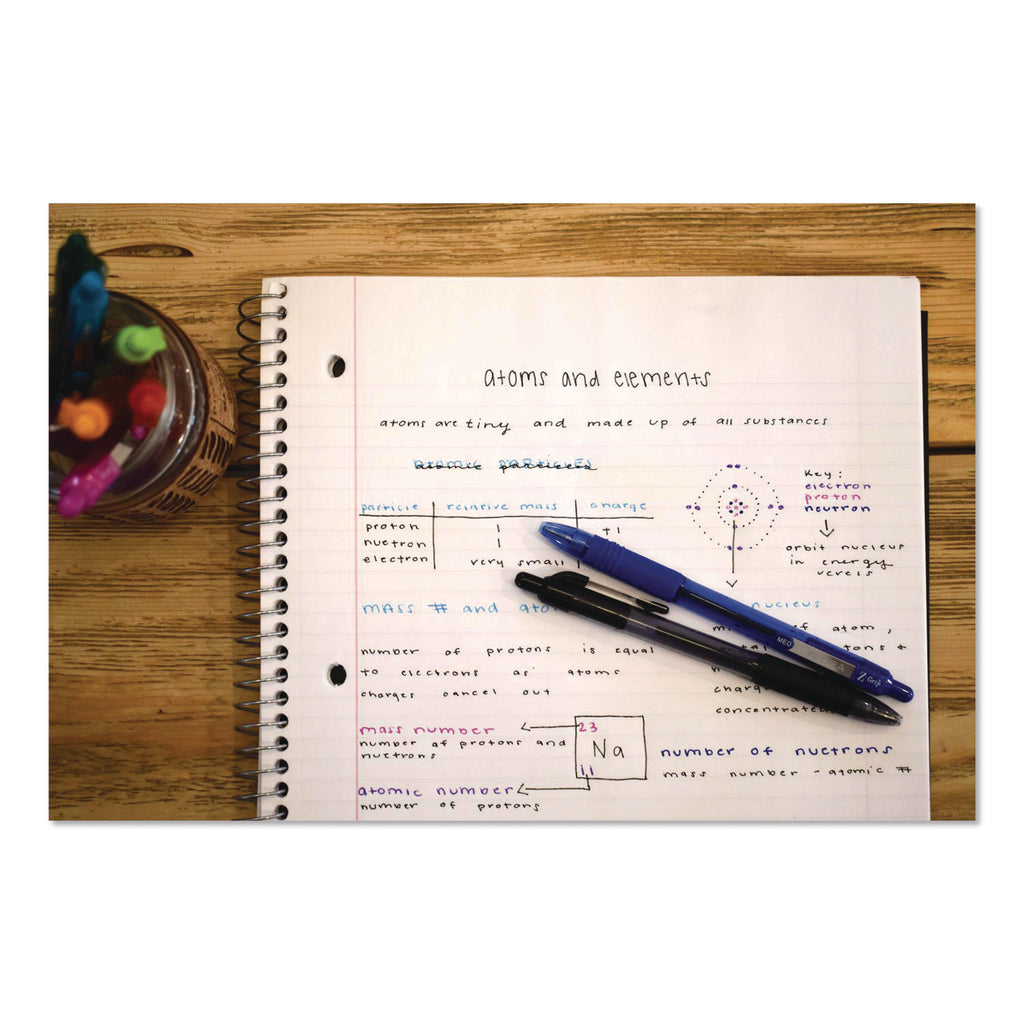 atoms and elements
atoms are tiny and made up of all substances
particle relative mass charge
proton 1 +1
nuetron 1
electron very small
Key:
electron
proton
neutron
orbit nucleus
in energy
MASS # and
nucleus
of atom,
number of protons is equal
to electrons as atoms
charges cancel out
concentrated
mass number
number of protons and
nuetrons
23
Na
11
atomic number
number of protons
number of nuetrons
mass number - atomic #
MED
Z Grip